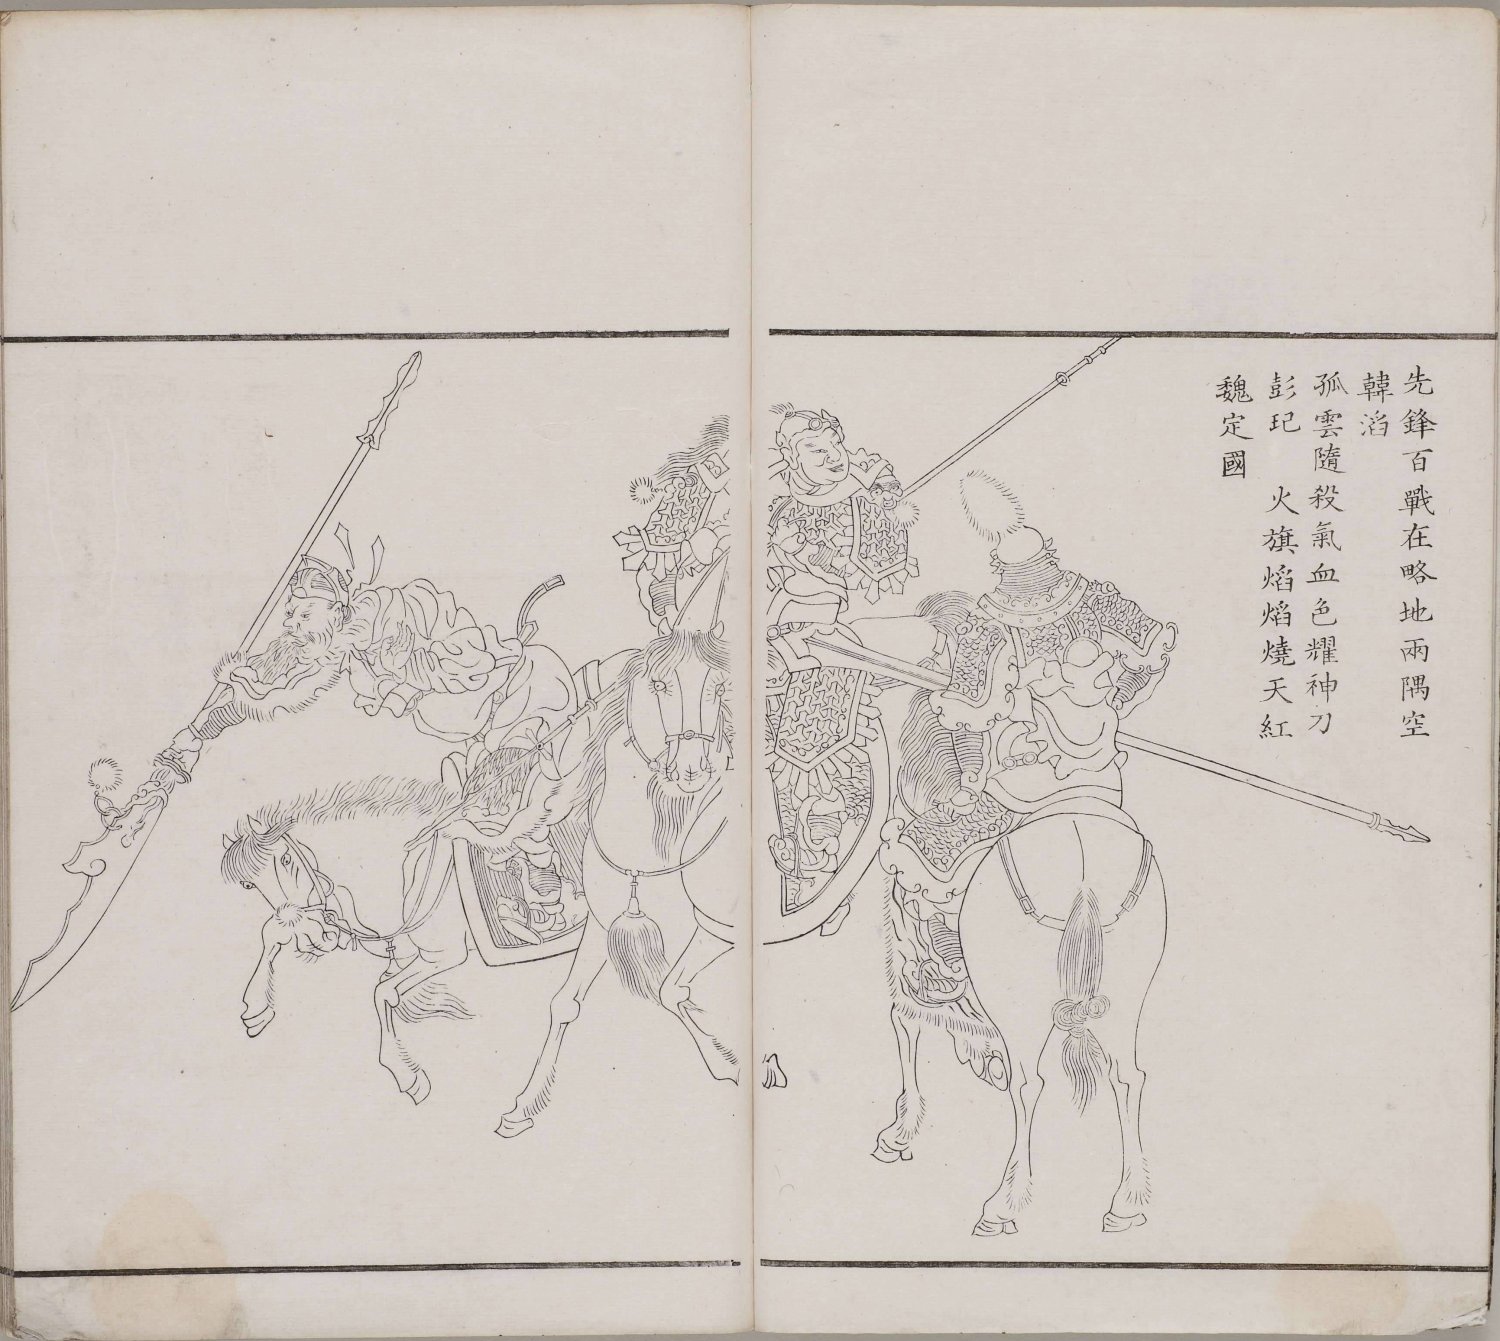 先鋒百戰在略地兩隅空
韓滔
孤雲隨殺氣血色耀神刀
彭玘 火旗熖熖燒天紅
魏定國